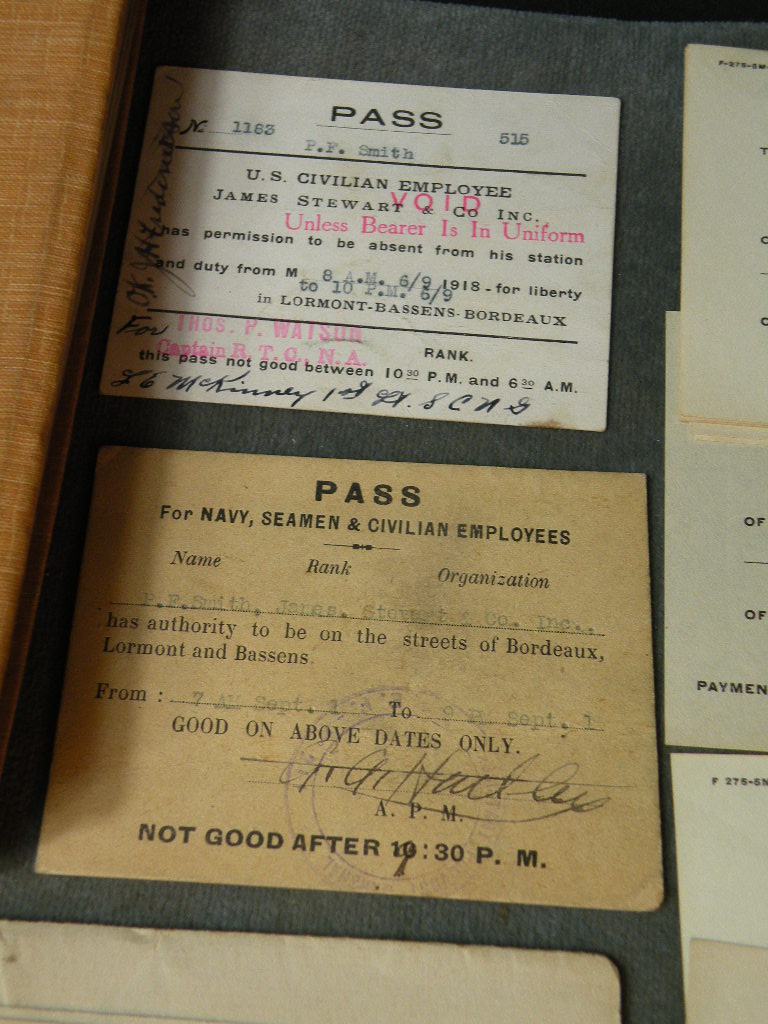 PASS
No 1163 515
P.F. Smith
U.S. CIVILIAN EMPLOYEE
VOID
JAMES STEWART & CO INC.
Unless Bearer Is In Uniform
has permission to be absent from his station
and duty from M 8 A.M. 6/9 1918 - for liberty
to 10 P.M. 6/9
in LORMONT-BASSENS-BORDEAUX
For THOS. P. WATSON
Captain R. T. C., N. A.
RANK.
this pass not good between 10 30 P.M. and 6 30 A.M.
McKinney 1st Lt. S C N G
PASS
For NAVY, SEAMEN & CIVILIAN EMPLOYEES
Name Rank Organization
P.F.Smith, James. Stewart & Co. Inc..
has authority to be on the streets of Bordeaux,
Lormont and Bassens
From : 7 AM Sept. 1 To 9 PM Sept. 1
GOOD ON ABOVE DATES ONLY.
A. P. M.
NOT GOOD AFTER 9:30 P. M.
OF
OF
PAYMEN
F 275-5N